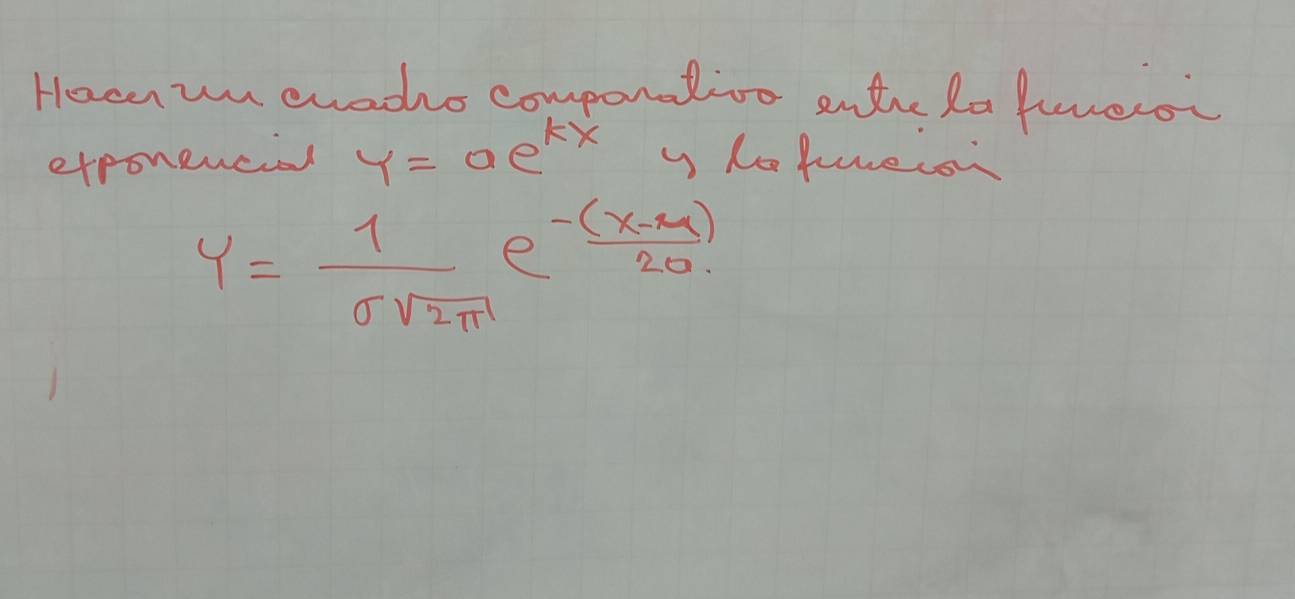 Hacer un cuadro comparativo entre la función
exponencial Y = ae^{kx} y la función
Y = \frac{1}{σ\sqrt{2π}} e^{-\frac{(x-μ)}{2σ}}.